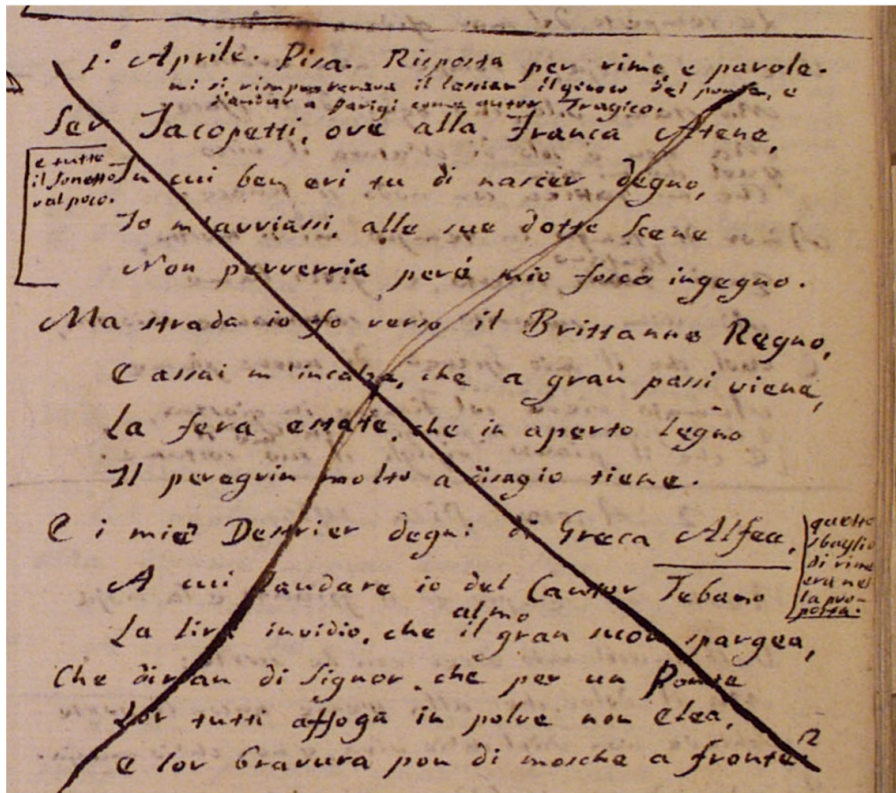 1.° Aprile. Pisa. Risposta per rime e parole.
mi si rimproverava il lasciar il giuoco del ponte, e
d'andar a Parigi come autor Tragico.
Ser Jacopetti, ove alla Franca Atene,
e tutto
il sonetto
val poco.
In cui ben eri tu di nascer degno,
Io m'avviassi, alle sue dotte Scene
Non perverria però mio fosco ingegno.
Ma strada io fo verso il Brittanno Regno,
E assai m'incalza, che a gran passi viene,
La fera estate, che in aperto legno
Il peregrin molto a disagio tiene.
E i miei Destrier degni di Greca Alfea,
questo
sbaglio
di rima
era nel
la pro-
posta.
A cui laudare io del Cantor Tebano
La lira invidio, che il gran suon spargea,
almo
Che dirian di Signor, che per un Ponte
Lor tutti affoga in polve non Elea,
E lor bravura pon di mosche a fronte?